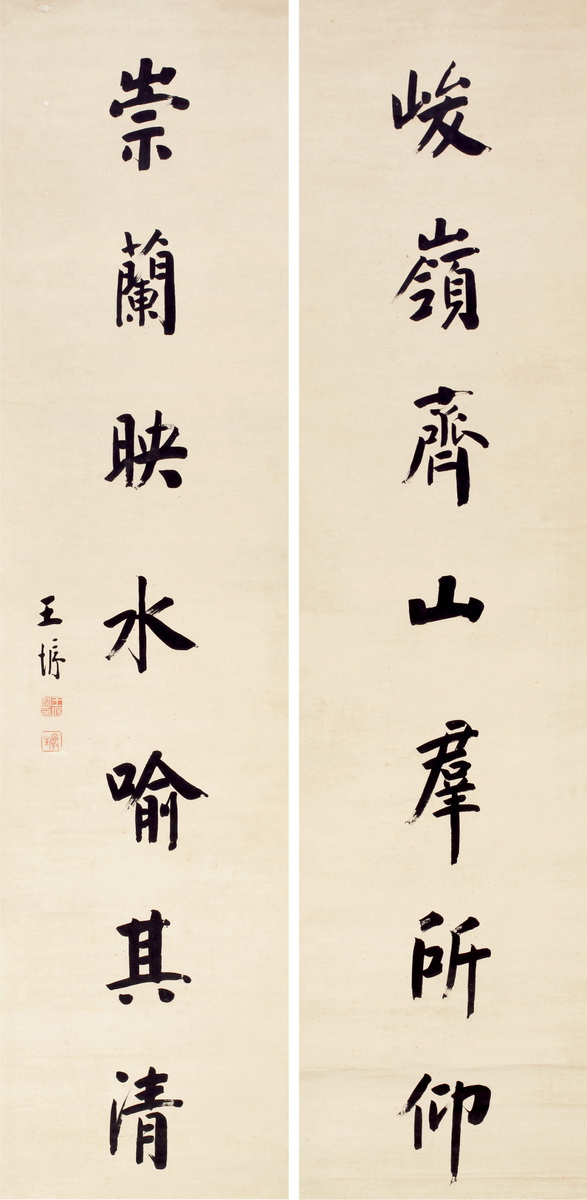 峻嶺齊山羣所仰
崇蘭映水喻其清
王垿